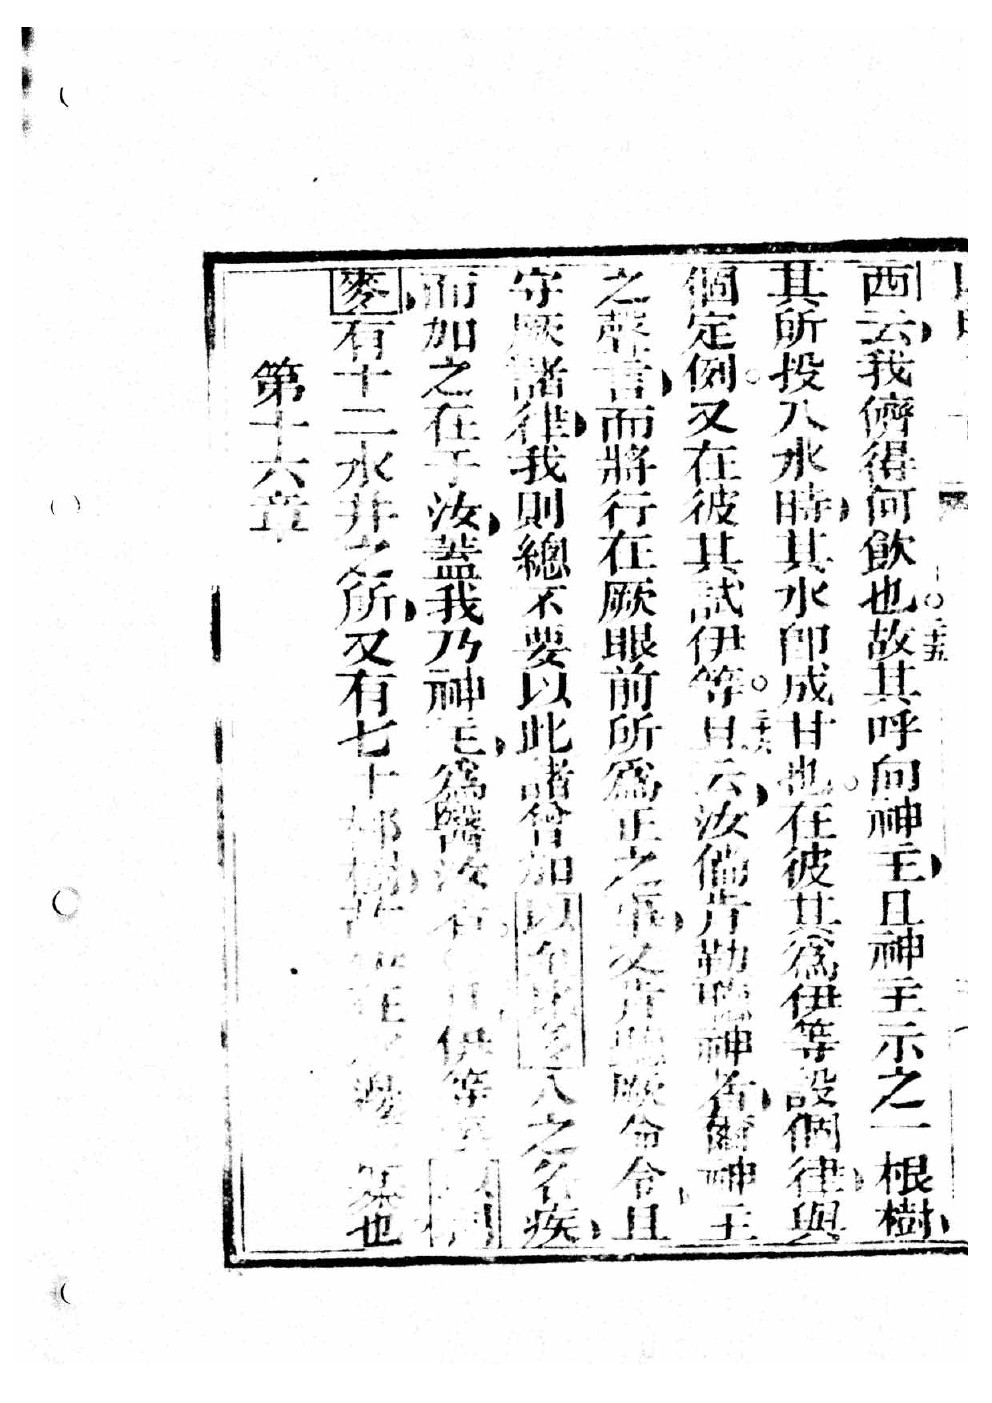 西云我儕得何飲也○二十五故其呼向神主且神主示之一根樹
其所投入水時其水即成甘也○在彼其爲伊等設個律與
個定例○又在彼其試伊等○二十六且云汝倘肯勒聽神者爾神主
之聲言而將行在厥眼前所爲正之事又肯聽厥命令且
守厥諸律我則總不要以此諸曾加以至比多人之各疾
而加之在于汝蓋我乃神主爲醫汝者 伊等至
麥有十二水井之所又有七十 樹 在 也
第十六章